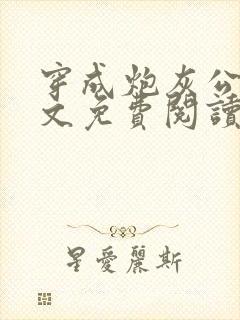 穿成炮灰公
文免費閱讀
星愛麗斯